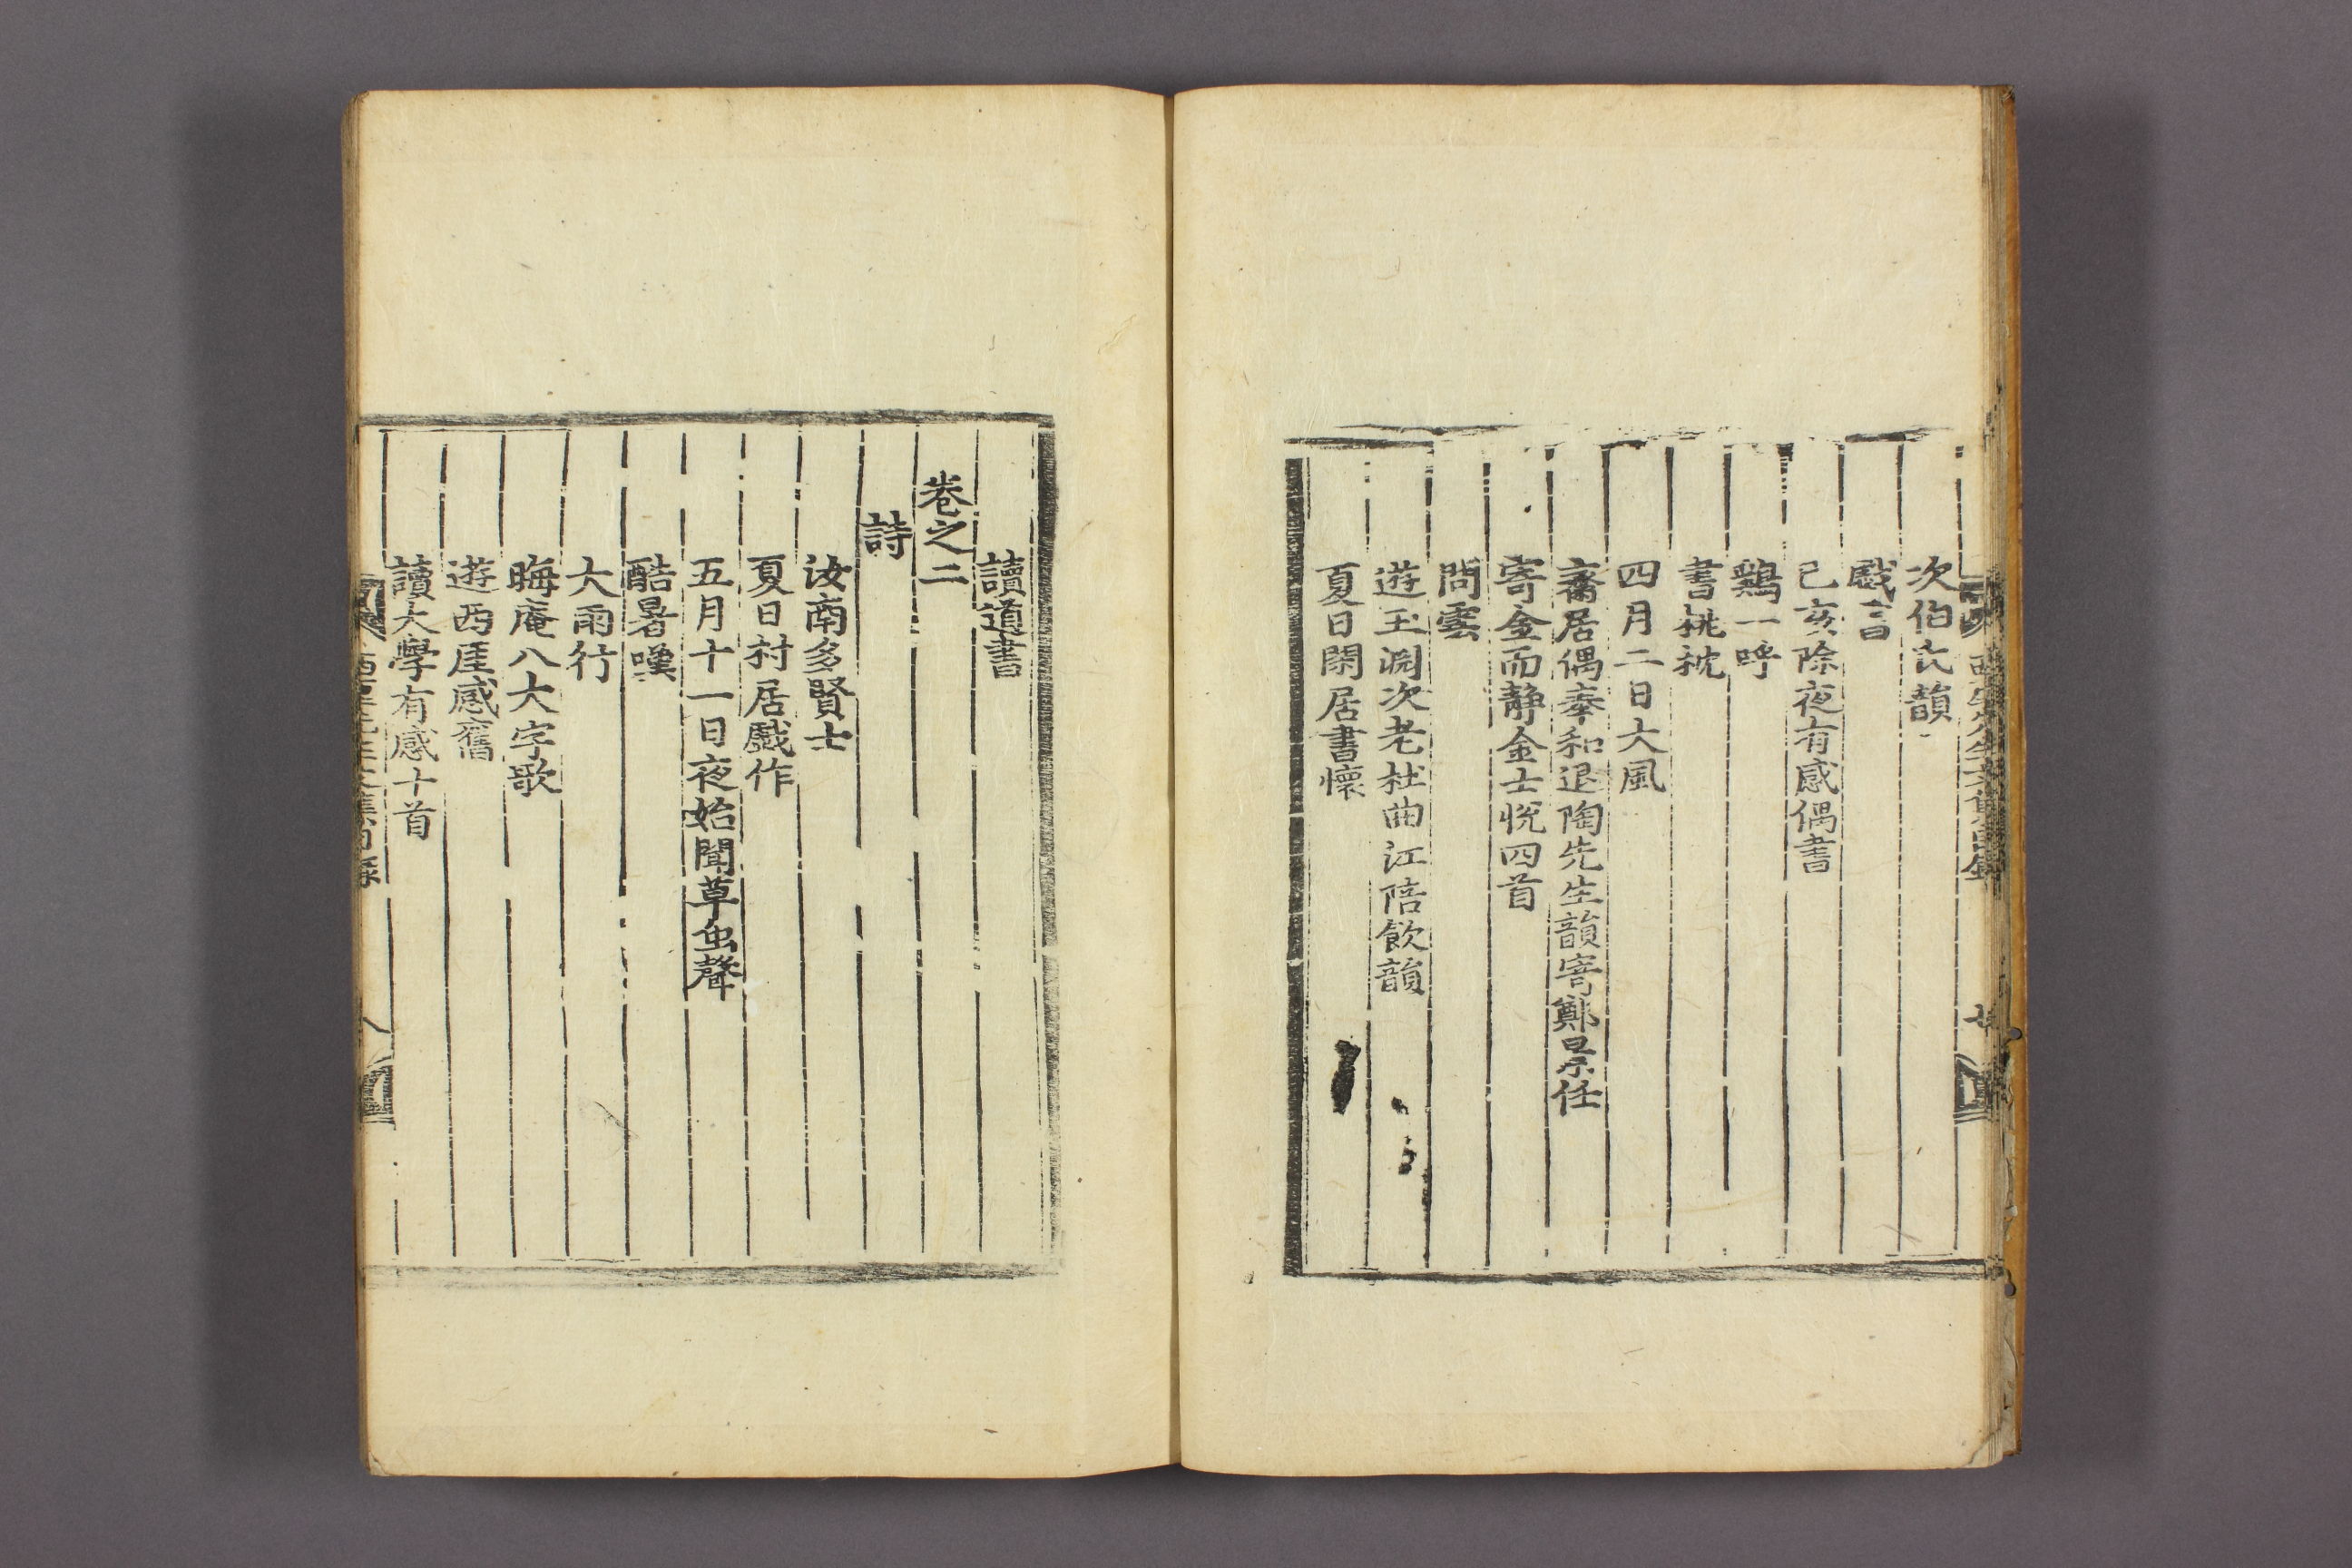 次伯氏韻
戱言
己亥除夜有感偶書
鷄一呼
書桃枕
四月二日大風
齋居偶奉和退陶先生韻寄鄭景任
寄金而靜金士悅四首
問雲
遊玉淵次老杜曲江陪飮韻
夏日閑居書懷
讀道書
卷之二
詩
汝南多賢士
夏日村居戱作
五月十一日夜始聞草虫聲
酷暑嘆
大雨行
晦庵八大字歌
遊西厓感舊
讀大學有感十首